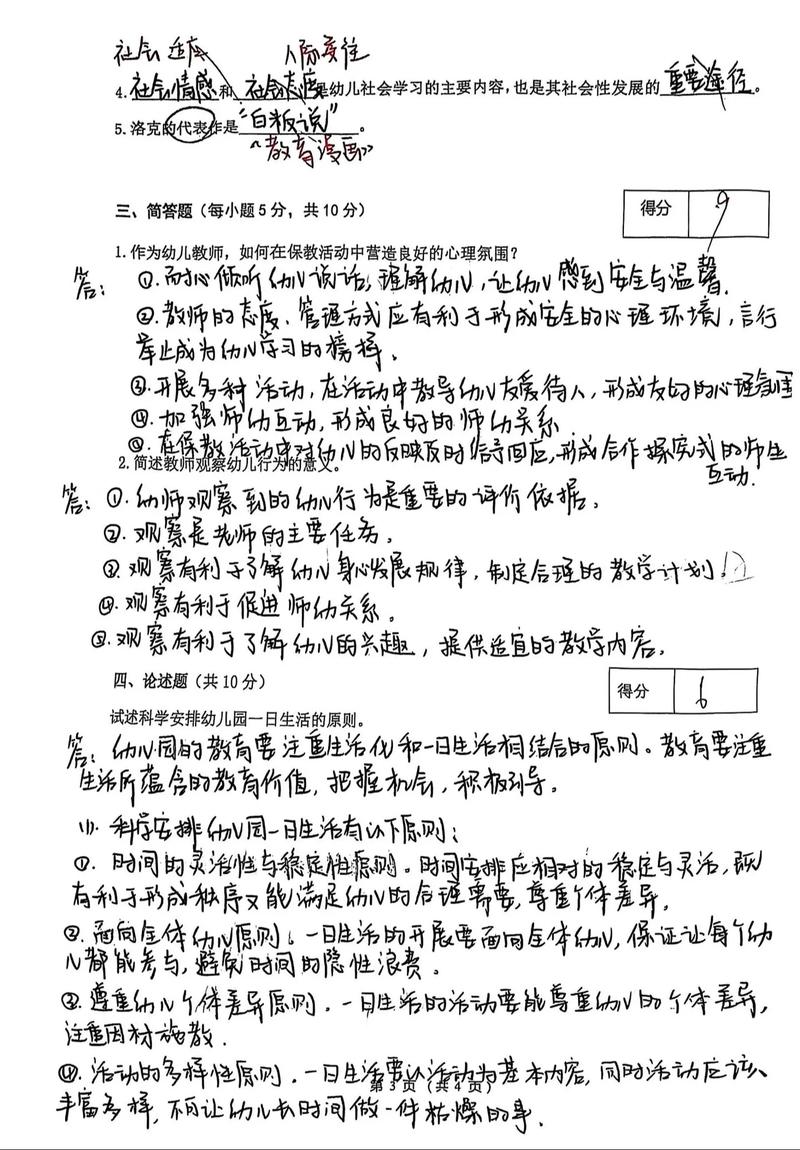 社会适应 人际交往
4.社会情感和 社会态度是幼儿社会学习的主要内容,也是其社会性发展的 重要途径。
5.洛克的代表作是"白板说"。
《教育漫画》
三、简答题(每小题5分,共10分)
得分 9
1.作为幼儿教师,如何在保教活动中营造良好的心理氛围?
答: ①.耐心倾听幼儿说话,理解幼儿,让幼儿感到安全与温馨.
②.教师的态度、管理方式应有利于形成安全的心理环境,言行
举止成为幼儿学习的榜样。
③.开展多种活动,在活动中教导幼儿友爱待人,形成友好的心理氛围
④.加强师幼互动,形成良好的师幼关系
⑤.在保教活动中对幼儿的反映及时给予回应,形成合作探究式的师生
互动.
2.简述教师观察幼儿行为的意义。
答: ①.幼师观察到的幼儿行为是重要的评价依据。
②.观察是老师的主要任务。
③.观察有利于了解幼儿身心发展规律,制定合理的教学计划.
④.观察有利于促进师幼关系。
⑤.观察有利于了解幼儿的兴趣,提供适宜的教学内容。
四、论述题(共10分)
得分 6
试述科学安排幼儿园一日生活的原则。
答:幼儿园的教育要注重生活化和一日生活相结合的原则。教育要注重
生活所蕴含的教育价值,把握机会,积极引导。
(1).科学安排幼儿园一日生活有以下原则:
①.时间的灵活性与稳定性原则.时间安排应相对的稳定与灵活,既
有利于形成秩序又能满足幼儿的合理需要,尊重个体差异.
②.面向全体幼儿原则:一日生活的开展要面向全体幼儿,保证让每个幼
儿都能参与,避免时间的隐性浪费。
③.遵重幼儿个体差异原则.一日生活的活动要能尊重幼儿的个体差异,
注重因材施教.
④.活动的多样性原则.一日生活要以活动为基本内容,同时活动应该
丰富多样,不可让幼儿长时间做一件枯燥的事.
第3页(共4页)